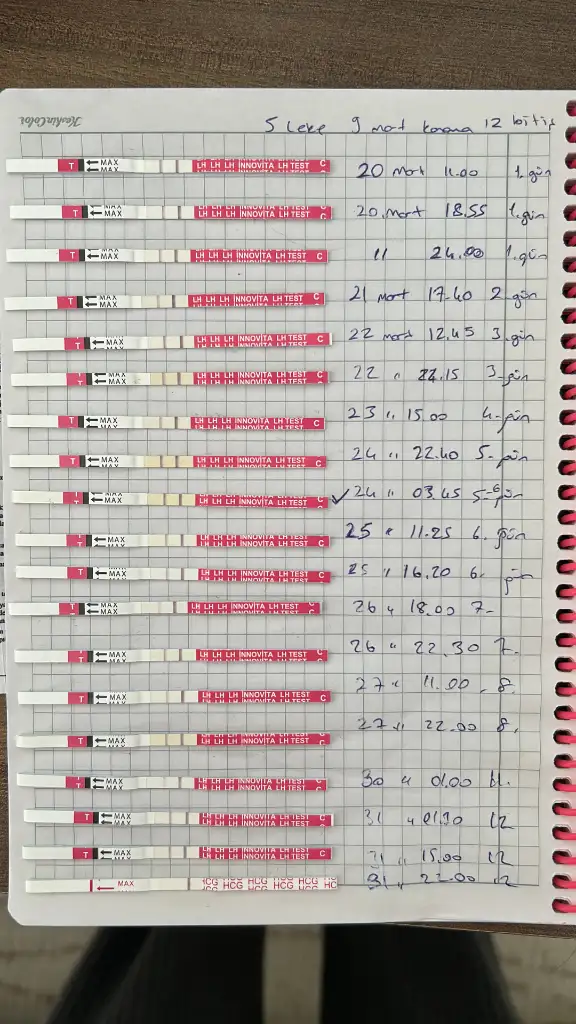 KeskinColor
5 Leke 9 mart kanama 12 bitiş
T MAX LH LH LH INNOVITA LH TEST C 20 mart 11.00 1.gün
T MAX LH LH LH INNOVITA LH TEST C 20.mart 18.55 1.gün
T MAX LH LH LH INNOVITA LH TEST C 11 24.00 1.gün
T MAX LH LH LH INNOVITA LH TEST C 21 mart 17.40 2 gün
T MAX LH LH LH INNOVITA LH TEST C 22 mart 12.45 3.gün
T MAX LH LH LH INNOVITA LH TEST C 22 " 22.15 3-gün
T MAX LH LH LH INNOVITA LH TEST C 23 " 15.00 4-gün
T MAX LH LH LH INNOVITA LH TEST C 24 " 22.40 5-gün
T MAX LH LH LH INNOVITA LH TEST C ✓ 24 " 03.45 5-6 gün
T MAX LH LH LH INNOVITA LH TEST C 25 " 11.25 6. gün
T MAX LH LH LH INNOVITA LH TEST C 25 " 16.20 6. gün
T MAX LH LH LH INNOVITA LH TEST C 26 " 18.00 7-
T MAX LH LH LH INNOVITA LH TEST C 26 " 22.30 7.
T MAX LH LH LH INNOVITA LH TEST C 27 " 11.00 . 8.
T MAX LH LH LH INNOVITA LH TEST C 27 " 22.00 8.
T MAX LH LH LH INNOVITA LH TEST C 30 " 01.00 11.
T MAX LH LH LH INNOVITA LH TEST C 31 " 01.30 12
T MAX LH LH LH INNOVITA LH TEST C 31 " 15.00 12
MAX HCG HCG HCG HCG HCG HC 31 " 22.00 12